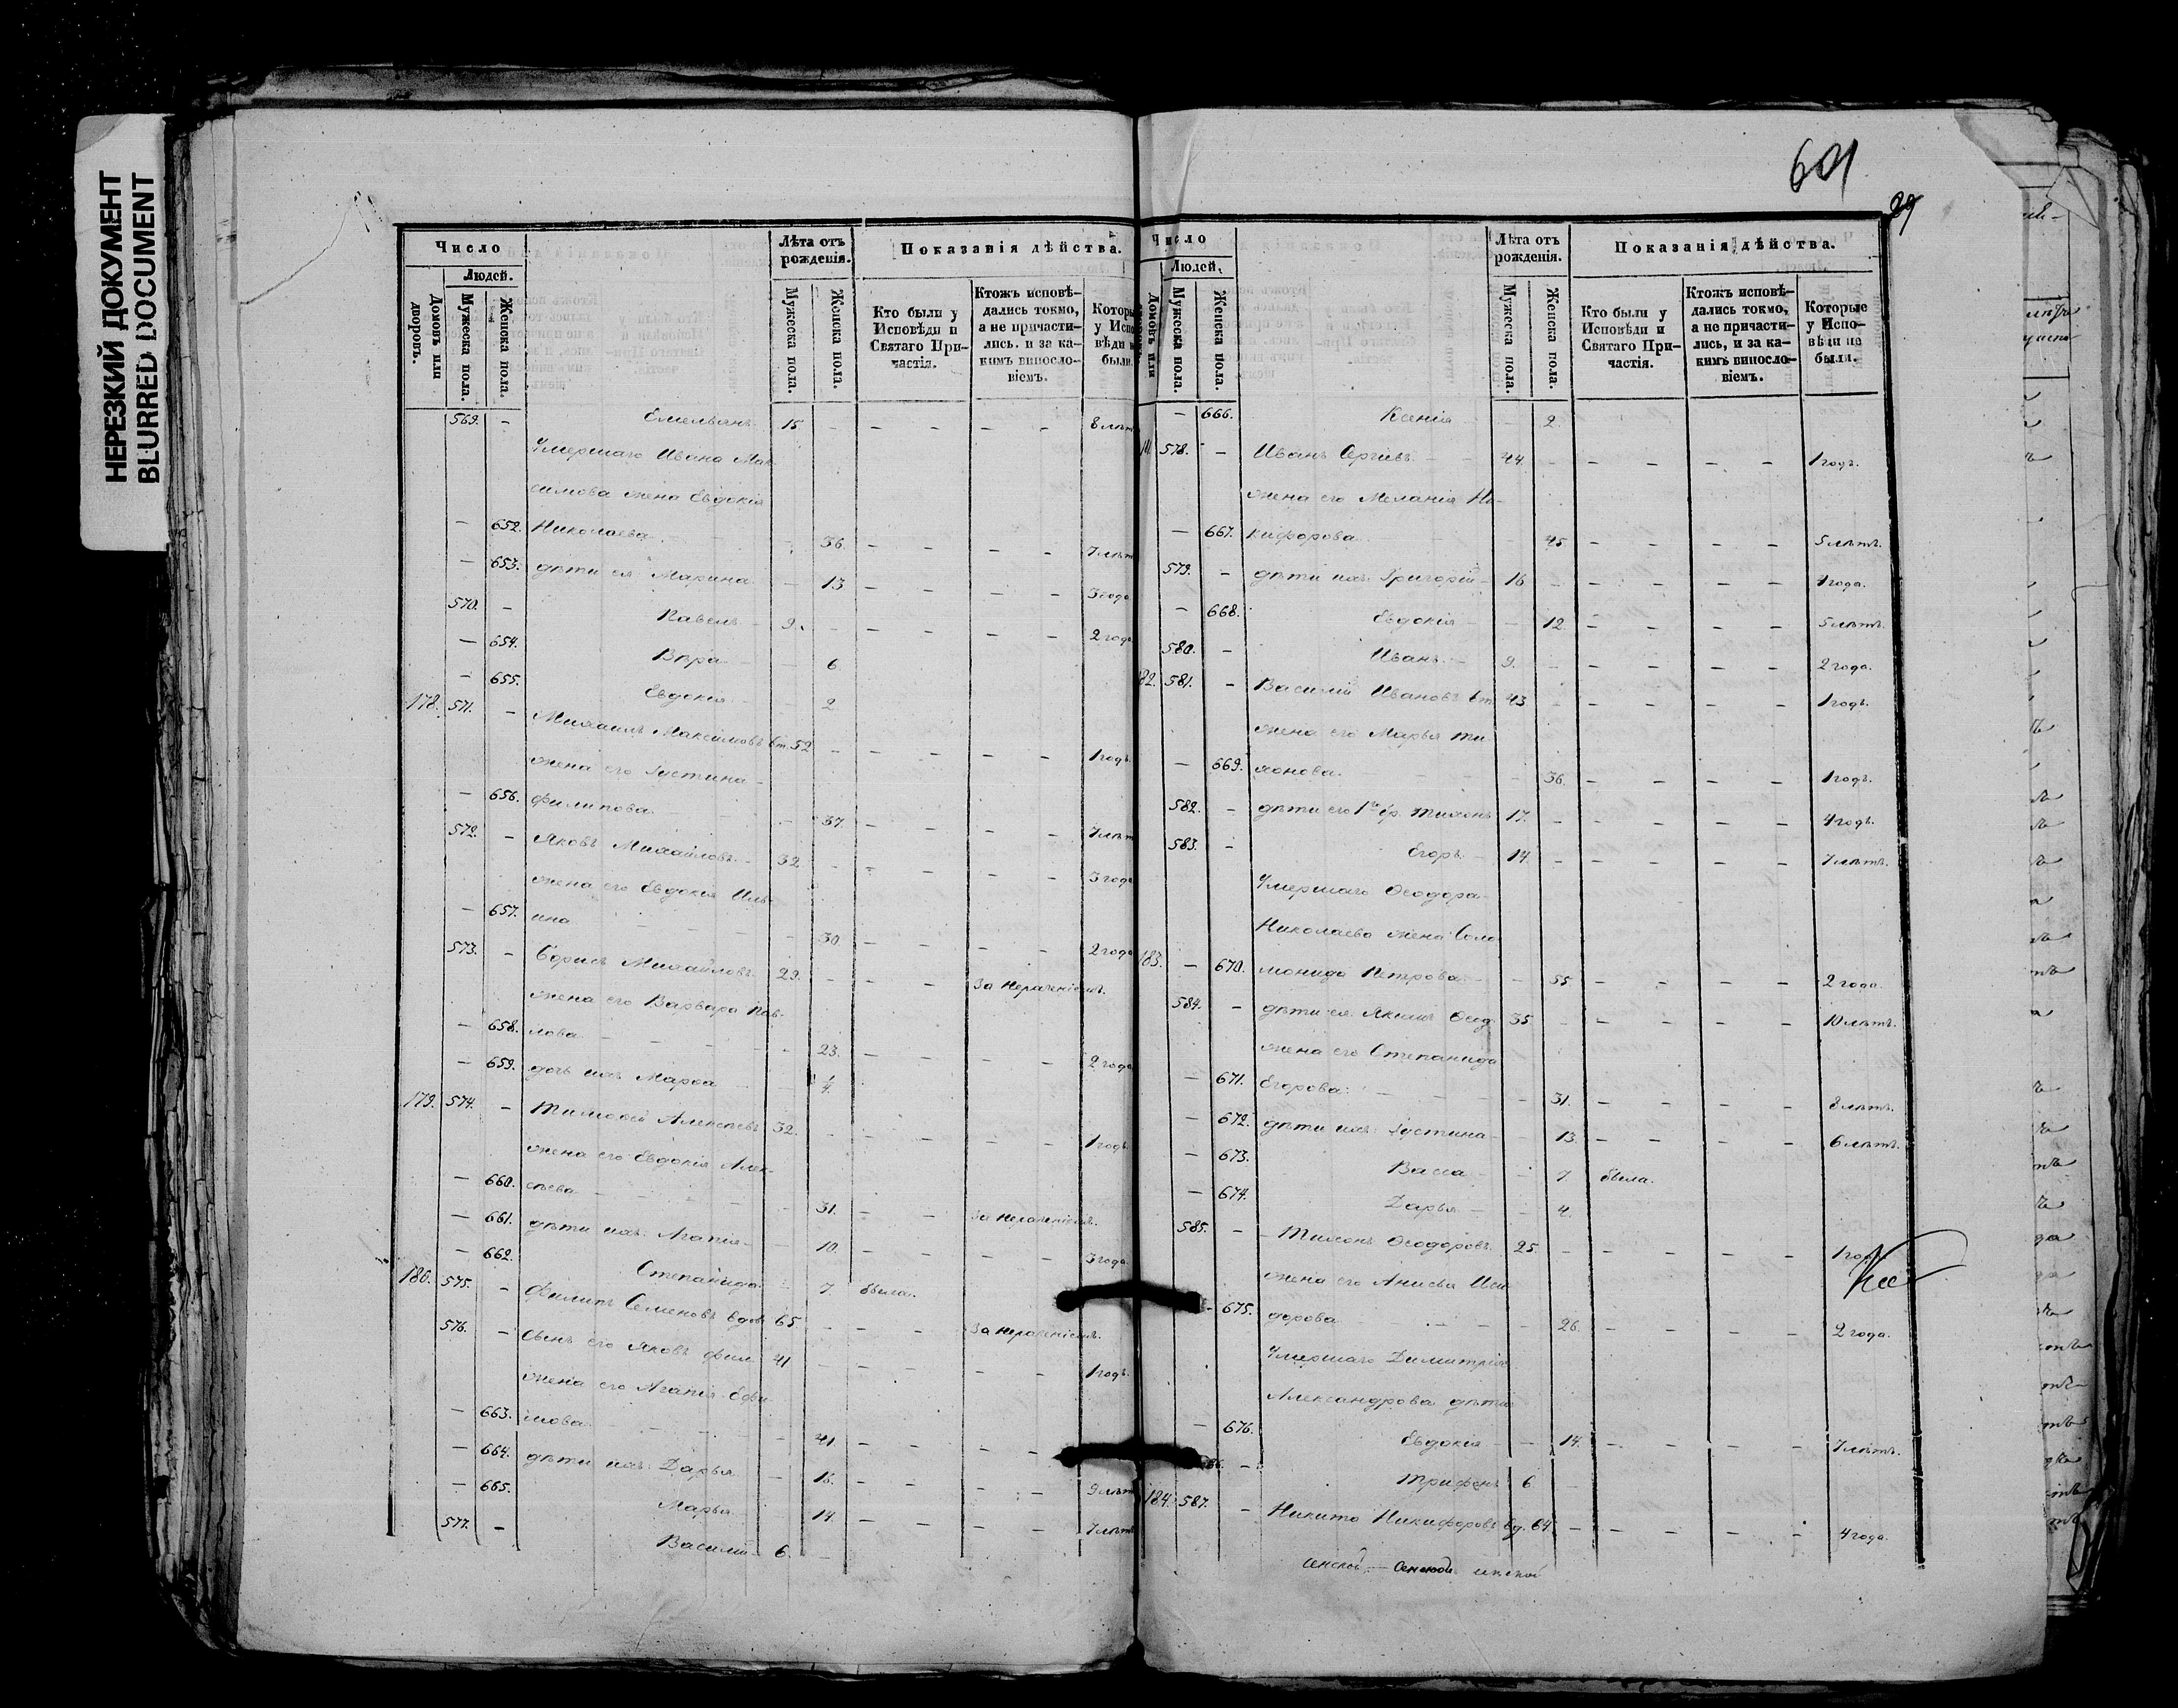 НЕРЕЗКИЙ ДОКУМЕНТ
BLURRED DOCUMENT
Число
Лѣта отъ рожденія.
Показанія дѣйства.
Людей.
Домовъ или дворовъ.
Мужеска пола.
Женска пола.
Мужеска пола.
Женска пола.
Кто были у Исповѣди и Святаго Причастія.
Ктожъ исповѣдались токмо, а не причастились. и за какимъ винословіемъ.
Которые у Исповѣди не были.
569. - Емельянъ 15 - - - - - 8 лѣтъ
Умершаго Ивана Мак-
симова жена Евдокія
- 652. Николаева - 36 - - - - 7 лѣтъ
- 653. дѣти ея Марина - 13 - - - - 3 года
570. - Павелъ 9. - - - - - 2 года
- 654. Вѣра - 6
- 655. Евдокія - 2
178. 571. - Михаилъ Максимовъ вт. 52 - - - - - 1 годъ.
жена его Іустина
- 656. Филипова - 37. - - - - 7 лѣтъ
572. - Яковъ Михайловъ 32 - - - - - 3 года
жена его Евдокія Иль-
- 657. ина - 30 - - - - 2 года
573. - Борисъ Михайловъ 29. - - - За нераченіемъ.
жена его Варвара Пав-
- 658. лова - 23. - - - - 2 года
- 659. дочь ихъ Марѳа - ¼.
179. 574. - Тимоѳей Алексѣевъ 32. - - - - - 1 годъ.
жена его Евдокія Алек-
- 660. сѣева - 31. - - За нераченіемъ.
- 661. дѣти ихъ: Агапія - 10. - - - - 3 года
- 662. Степанида - 7. была.
180. 575. - Филипъ Семеновъ вдов. 65 - - - За нераченіемъ.
576. - Сынъ его Яковъ Фил. 41 - - - - - 1 годъ.
жена его Агапія Ефи-
- 663. мова - 41. - - - -
- 664. дѣти ихъ: Дарья - 16. - - - - 9 лѣтъ
- 665. Марья - 14 - - - - 7 лѣтъ
577. - Василій 6. -
601
29
Число
Лѣта отъ рожденія.
Показанія дѣйства.
Людей.
Домовъ или
Мужеска пола.
Женска пола.
Мужеска пола.
Женска пола.
Кто были у Исповѣди и Святаго Причастія.
Ктожъ исповѣдались токмо, а не причастились, и за какимъ винословіемъ.
Которые у Исповѣди не были.
- 666. Ксенія - 2.
578. - Иванъ Сергіевъ 44. - - - - - 1 годъ.
жена его Меланія Ни-
- 667. кифорова - 45 - - - - 5 лѣтъ.
579. - дѣти ихъ: Григорій 16 - - - - - 1 года.
- 668. Евдокія - 12. - - - - 5 лѣтъ.
580. - Иванъ 9. - - - - - 2 года.
182. 581. - Василій Ивановъ вт. 43 - - - - - 1 годъ.
жена его Марья Ти
- 669. хонова - 36. - - - - 1 годъ.
582. - дѣти его 1го бр. Тихонъ 17. - - - - - 4 годъ.
583. - Егоръ 14. - - - - - 7 лѣтъ.
Умершаго Ѳеодора
Николаева жена Соло
183. - 670. монида Петрова - 55 - - - - 2 года.
584. - дѣти ея Якимъ Ѳеод. 35 - - - - - 10 лѣтъ.
жена его Степанида
- 671. Егорова: - 31. - - - - 8 лѣтъ.
- 672. дѣти ихъ: Іустина - 13. - - - - 6 лѣтъ.
- 673. Васса - 7. была.
- 674. Дарья - 4.
585. - Тихонъ Ѳеодоровъ 25. - - - - - 1 годъ.
жена его Анисья Иси
- 675. дорова - 26. - - - - 2 года.
Умершаго Димитрія
Александрова дѣти
- 676. Евдокія - 14. - - - - 7 лѣтъ.
- Трифонъ 6
184. 587. - Никита Никифоровъ вд. 64. - - - - - 4 года.